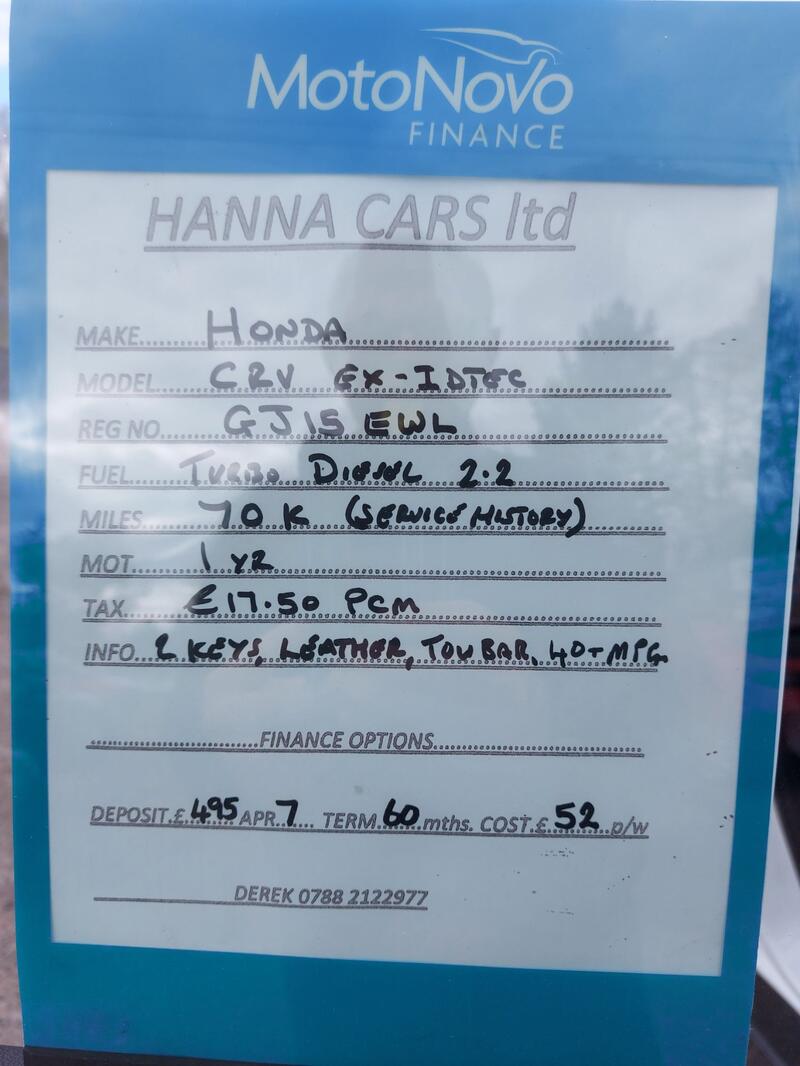 MotoNovo
FINANCE
HANNA CARS ltd
MAKE...... HONDA
MODEL...... CRV EX-IDTEC
REG NO...... GJ15 EWL
FUEL...... TURBO DIESEL 2.2
MILES...... 70K (SERVICE HISTORY)
MOT...... 1 YR
TAX...... £17.50 PCM
INFO... 2 KEYS, LEATHER, TOWBAR, 40+MPG
......FINANCE OPTIONS......
DEPOSIT.£.495 APR.7... TERM.60.mths. COST.£.52 p/w
DEREK 0788 2122977